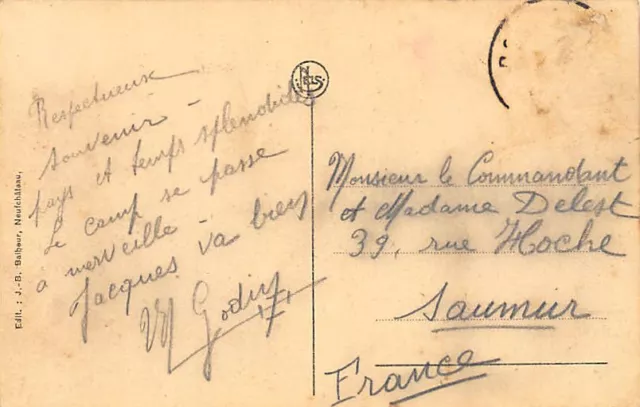 Respectueux
souvenir –
pays et temps splendides
Le camp se passe
à merveille –
Jacques va bien
M Godin
Monsieur le Commandant
et Madame Delest
39, rue Hoche
Saumur
France
Edit. : J.-B. Balbeur, Neufchâteau,